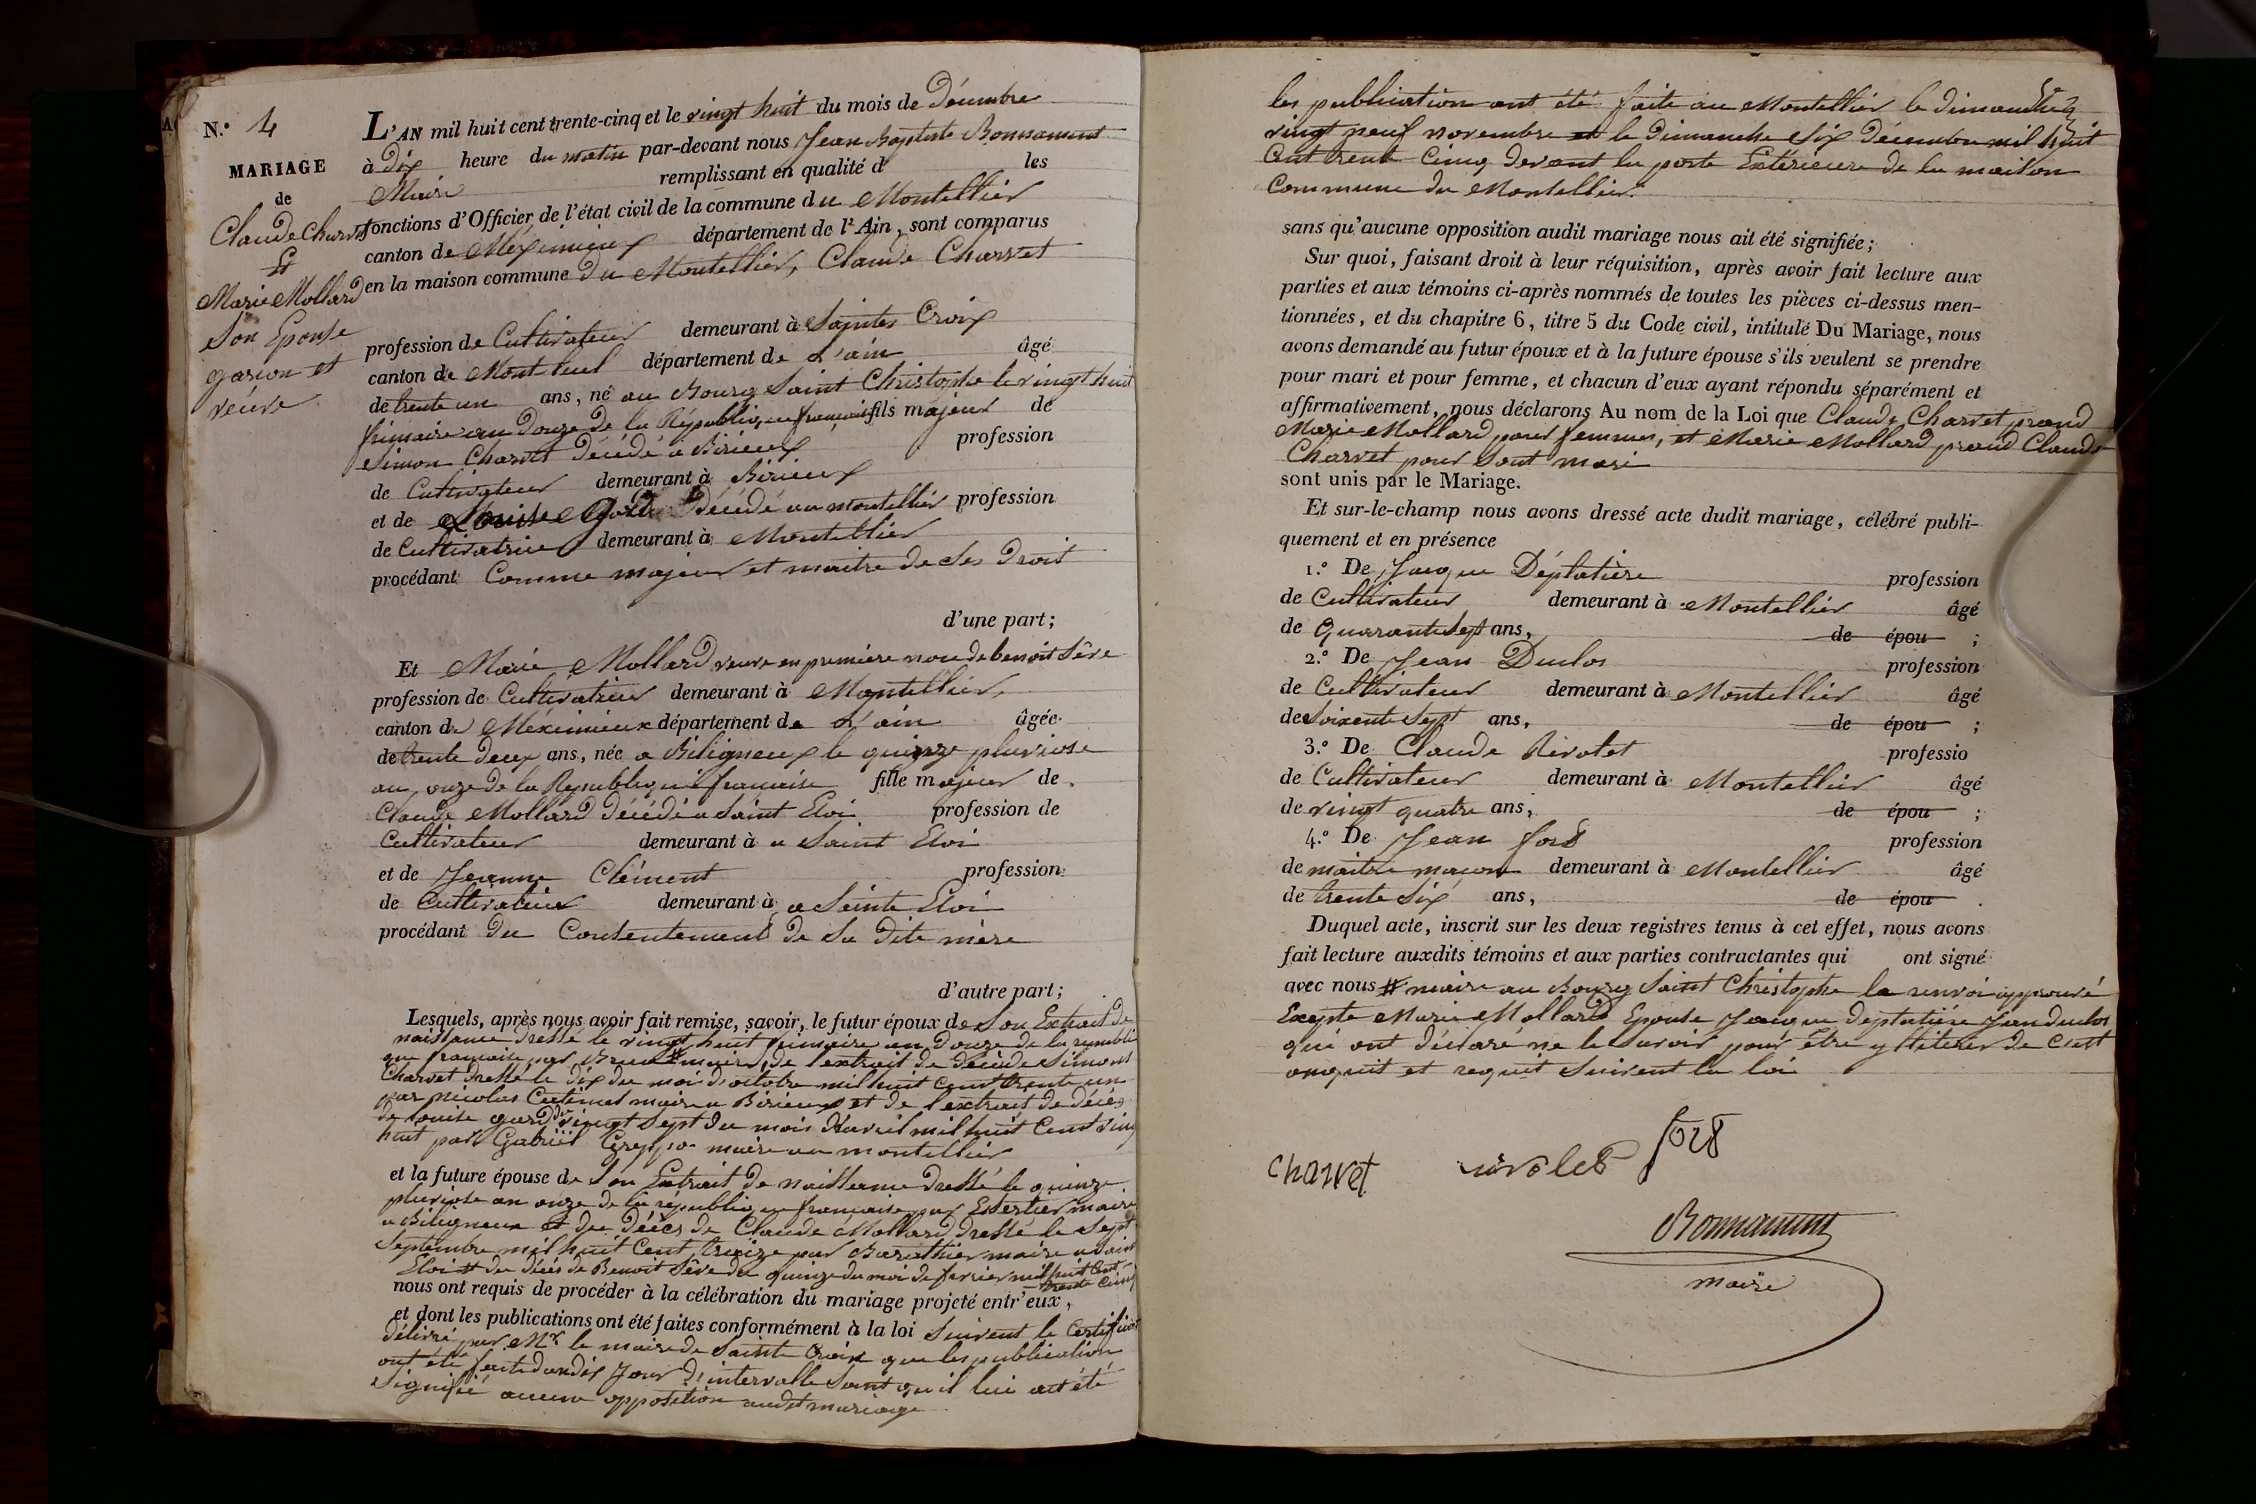 N.º 4
MARIAGE
de
Claude Charvet
Et
Marie Mollard
Son Epouse
garson et
veuve
L'AN mil huit cent trente-cinq et le vingt huit du mois de Décembre
à Dix heure du matin par-devant nous Jean Baptiste Bonnamant
Maire remplissant en qualité d les
fonctions d'Officier de l'état civil de la commune du Montellier
canton de Méximieux département de l'Ain, sont comparus
en la maison commune du Montellier, Claude Charvet
profession de Cultivateur demeurant à Saintes Croix
canton de Mont-luel département de L'ain âgé
de trente un ans, né au Bourg Saint Christophe le vingt huit
frimaire an Douze de la République française fils majeur de
Simon Charvet Décédé a Birieux profession
de Cultivateur demeurant à Birieux
et de Louise Décédé au montellier profession
de Cultivatrice demeurant à Montellier
procédant Comme majeur et maitre de Ses Droit
d'une part;
Et Marie Mollard veuve en premiere noce de benoit Sève
profession de Cultivatrice demeurant à Montellier,
canton de Méximieux département de L'ain âgée
de trente deux ans, née a Biligneux le quinze pluviose
an onze de la République française fille majeur de
Claude Mollard Décédé a Saint Eloi profession de
Cultivateur demeurant à a Saint Eloi
et de Jeanne Clément profession
de Cultivatrice demeurant à a Sainte Eloi
procédant Du Consentement de Sa Dite mère
d'autre part;
Lesquels, après nous avoir fait remise, savoir, le futur époux de Son Extrait de
naissance Dressé le vingt huit frimaire an Douze de la republi
que française par maire, de l'extrait de Décède Simons
Charvet Dressé le Dix du mois D'octobre mil huit Cent trente un
par nicolas Catimel maire a Birieux et de l'extrait de Décès
de Louise vingt Sept du mois D'avril mil huit Cent vin
huit par Gabriël Greppo maire au montellier
et la future épouse de Son Extrait de naissance Dressé le quinze
pluviose an onze de la république française par Essertier maire
a Biligneux et du Décès de Claude Mollard Dressé le Sept
Septembre mil huit Cent treize par Barathier maire a Saint
Eloi # du Décès de Benoit Sève du quinze du moi de fevrier mil huit Cent
trente Cinq
nous ont requis de procéder à la célébration du mariage projeté entr'eux,
et dont les publications ont été faites conformément à la loi Suivent le Certificat
Délivré par Mr. le maire de Sainte Croix que les publication
ont été faite Dondix Jour D'intervalle Sant qu'il lui ait été
Signifié aucune opposition audit mariage
les publication ont été faite au Montellier le dimanche
vingt neuf novembre et le Dimanche Six Décembre mil huit
Cent trente Cinq Devant la porte Extérieure de la maison
Commune du Montellier.
sans qu'aucune opposition audit mariage nous ait été signifiée;
Sur quoi, faisant droit à leur réquisition, après avoir fait lecture aux
parties et aux témoins ci-après nommés de toutes les pièces ci-dessus men-
tionnées, et du chapitre 6, titre 5 du Code civil, intitulé Du Mariage, nous
avons demandé au futur époux et à la future épouse s'ils veulent se prendre
pour mari et pour femme, et chacun d'eux ayant répondu séparément et
affirmativement, nous déclarons Au nom de la Loi que Claude Charvet prand
Marie Mollard pour femme, et Marie Mollard prand Claude
Charvet pour Sont mari
sont unis par le Mariage.
Et sur-le-champ nous avons dressé acte dudit mariage, célébré publi-
quement et en présence
1.º De Jacque Déplatière profession
de Cultivateur demeurant à Montellier âgé
de Quarante Sept ans, de épou ;
2.º De Jean Duclos profession
de Cultivateur demeurant à Montellier âgé
de Soixente Sept ans, de épou ;
3.º De Claude Rivolet professio
de Cultivateur demeurant à Montellier âgé
de vingt quatre ans, de épou ;
4.º De Jean fors profession
de maitre maçon demeurant à Montellier âgé
de trente Six ans, de épou .
Duquel acte, inscrit sur les deux registres tenus à cet effet, nous avons
fait lecture auxdits témoins et aux parties contractantes qui ont signé
avec nous # maire au Bourg Saint Christophe le renvoi approuvé
Exepte Marie Mollard Epouse Jacque Deplatière Jean Duclos
qui ont Déclaré ne le Savoir pour être y Stitérer de Cest
enquit et requit Suivent la loi
Charvet
rivolet
fors
Bonnamant
maire